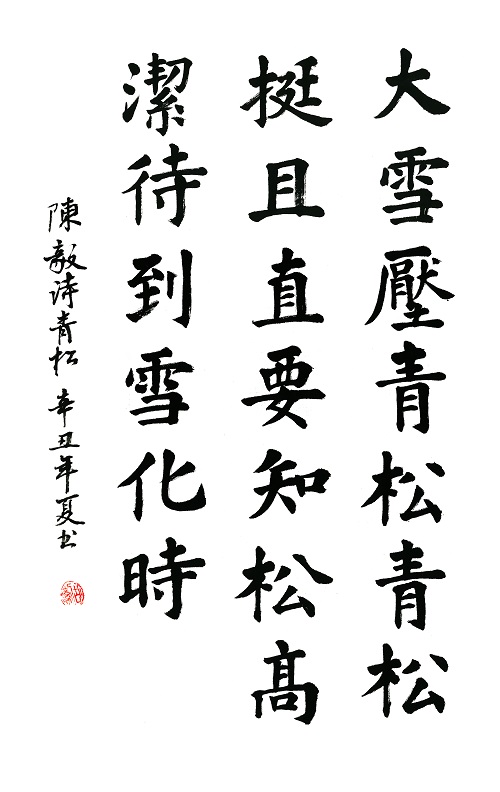 大雪壓青松青松
挺且直要知松高
潔待到雪化時
陳毅詩青松 辛丑年夏书